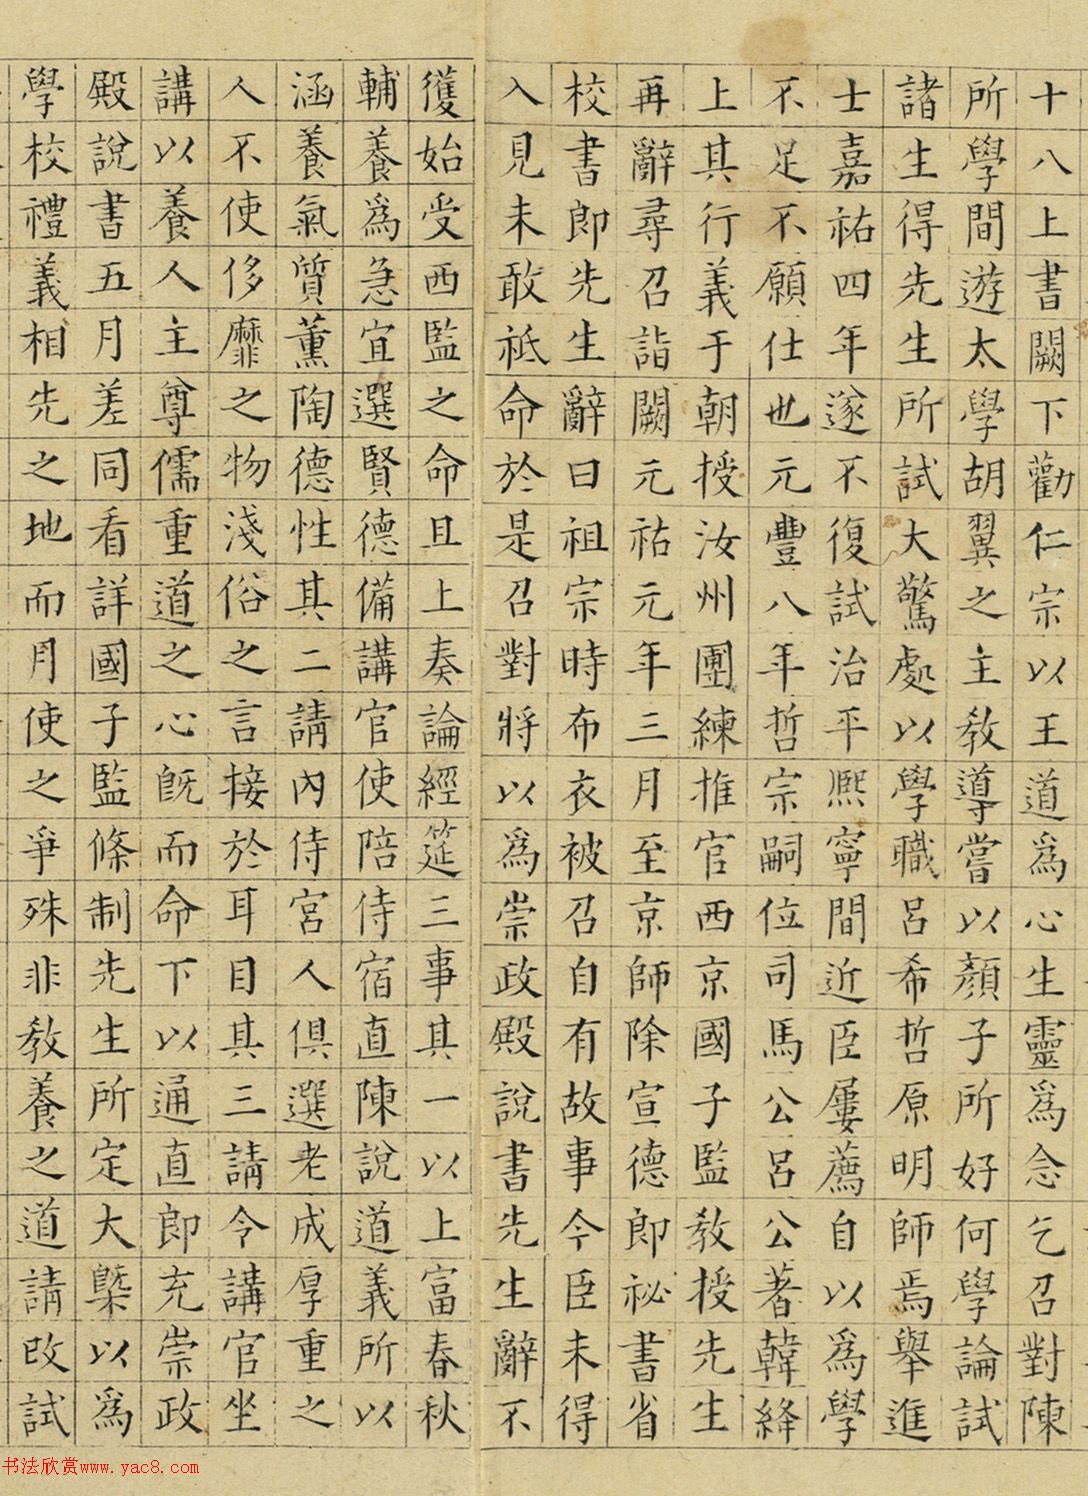 十八上書闕下勸仁宗以王道爲心生靈爲念乞召對陳
所學間遊太學胡翼之主教導嘗以顏子所好何學論試
諸生得先生所試大驚處以學職呂希哲原明師焉舉進
士嘉祐四年遂不復試治平熙寧間近臣屢薦自以爲學
不足不願仕也元豐八年哲宗嗣位司馬公呂公著韓絳
上其行義于朝授汝州團練推官西京國子監教授先生
再辭尋召詣闕元祐元年三月至京師除宣德郎祕書省
校書郎先生辭曰祖宗時布衣被召自有故事今臣未得
入見未敢祗命於是召對將以爲崇政殿說書先生辭不
獲始受西監之命且上奏論經筵三事其一以上富春秋
輔養爲急宜選賢德備講官使陪侍宿直陳說道義所以
涵養氣質薰陶德性其二請內侍宮人俱選老成厚重之
人不使侈靡之物淺俗之言接於耳目其三請令講官坐
講以養人主尊儒重道之心旣而命下以通直郎充崇政
殿說書五月差同看詳國子監條制先生所定大槩以爲
學校禮義相先之地而月使之爭殊非教養之道請改試
书法欣赏www.yac8.com